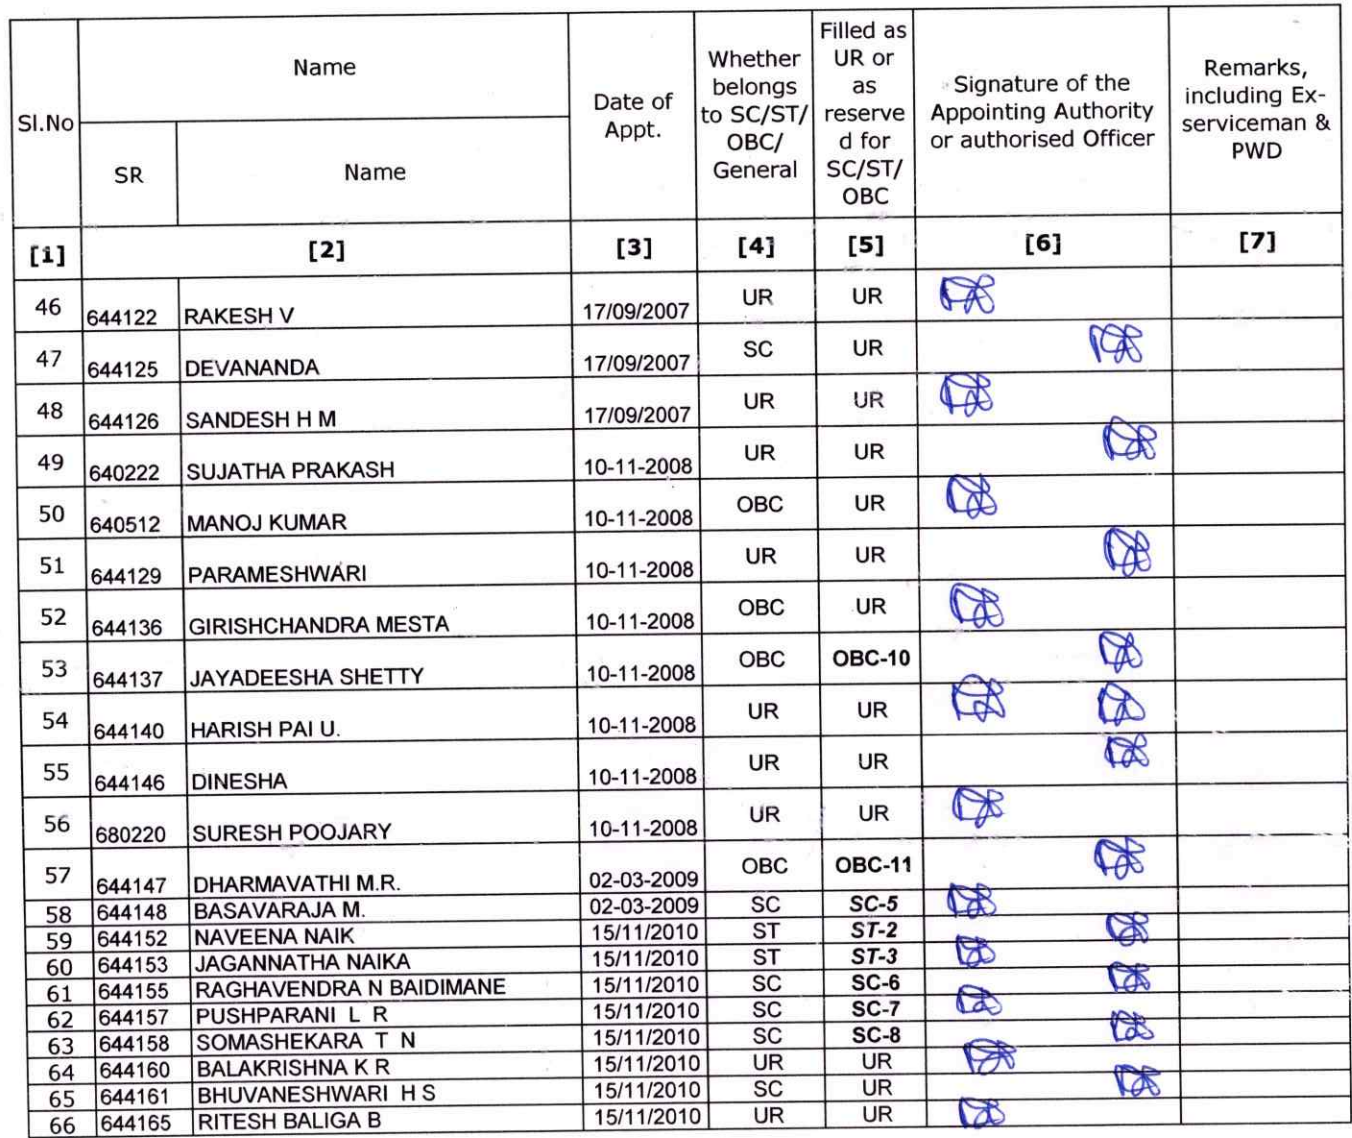 Sl.No Name Date of Appt. Whether belongs to SC/ST/ OBC/ General Filled as UR or as reserve d for SC/ST/ OBC Signature of the Appointing Authority or authorised Officer Remarks, including Ex- serviceman & PWD
SR Name
[1] [2] [3] [4] [5] [6] [7]
46 644122 RAKESH V 17/09/2007 UR UR
47 644125 DEVANANDA 17/09/2007 SC UR
48 644126 SANDESH H M 17/09/2007 UR UR
49 640222 SUJATHA PRAKASH 10-11-2008 UR UR
50 640512 MANOJ KUMAR 10-11-2008 OBC UR
51 644129 PARAMESHWARI 10-11-2008 UR UR
52 644136 GIRISHCHANDRA MESTA 10-11-2008 OBC UR
53 644137 JAYADEESHA SHETTY 10-11-2008 OBC OBC-10
54 644140 HARISH PAI U. 10-11-2008 UR UR
55 644146 DINESHA 10-11-2008 UR UR
56 680220 SURESH POOJARY 10-11-2008 UR UR
57 644147 DHARMAVATHI M.R. 02-03-2009 OBC OBC-11
58 644148 BASAVARAJA M. 02-03-2009 SC SC-5
59 644152 NAVEENA NAIK 15/11/2010 ST ST-2
60 644153 JAGANNATHA NAIKA 15/11/2010 ST ST-3
61 644155 RAGHAVENDRA N BAIDIMANE 15/11/2010 SC SC-6
62 644157 PUSHPARANI L R 15/11/2010 SC SC-7
63 644158 SOMASHEKARA T N 15/11/2010 SC SC-8
64 644160 BALAKRISHNA K R 15/11/2010 UR UR
65 644161 BHUVANESHWARI H S 15/11/2010 SC UR
66 644165 RITESH BALIGA B 15/11/2010 UR UR